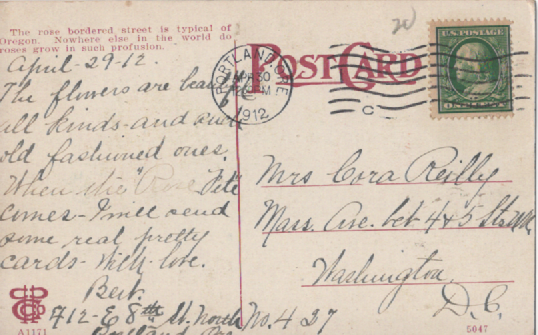 The rose bordered street is typical of
Oregon. Nowhere else in the world do
roses grow in such profusion.
April-29-12.
The flowers are
all kinds-and such
old fashioned ones.
When the "Rose Fete
comes-I will send
some real pretty
cards-With love.
Bert.
712-E 8th St. North
A1171
POST CARD
PORTLAND, ORE
APR 30
M
1912
C
20
U.S. POSTAGE
ONE CENT
Mrs Cora Reilly
Mass. Ave. bet 4 & 5 St. NW
Washington
D.C.
No. 427
5047